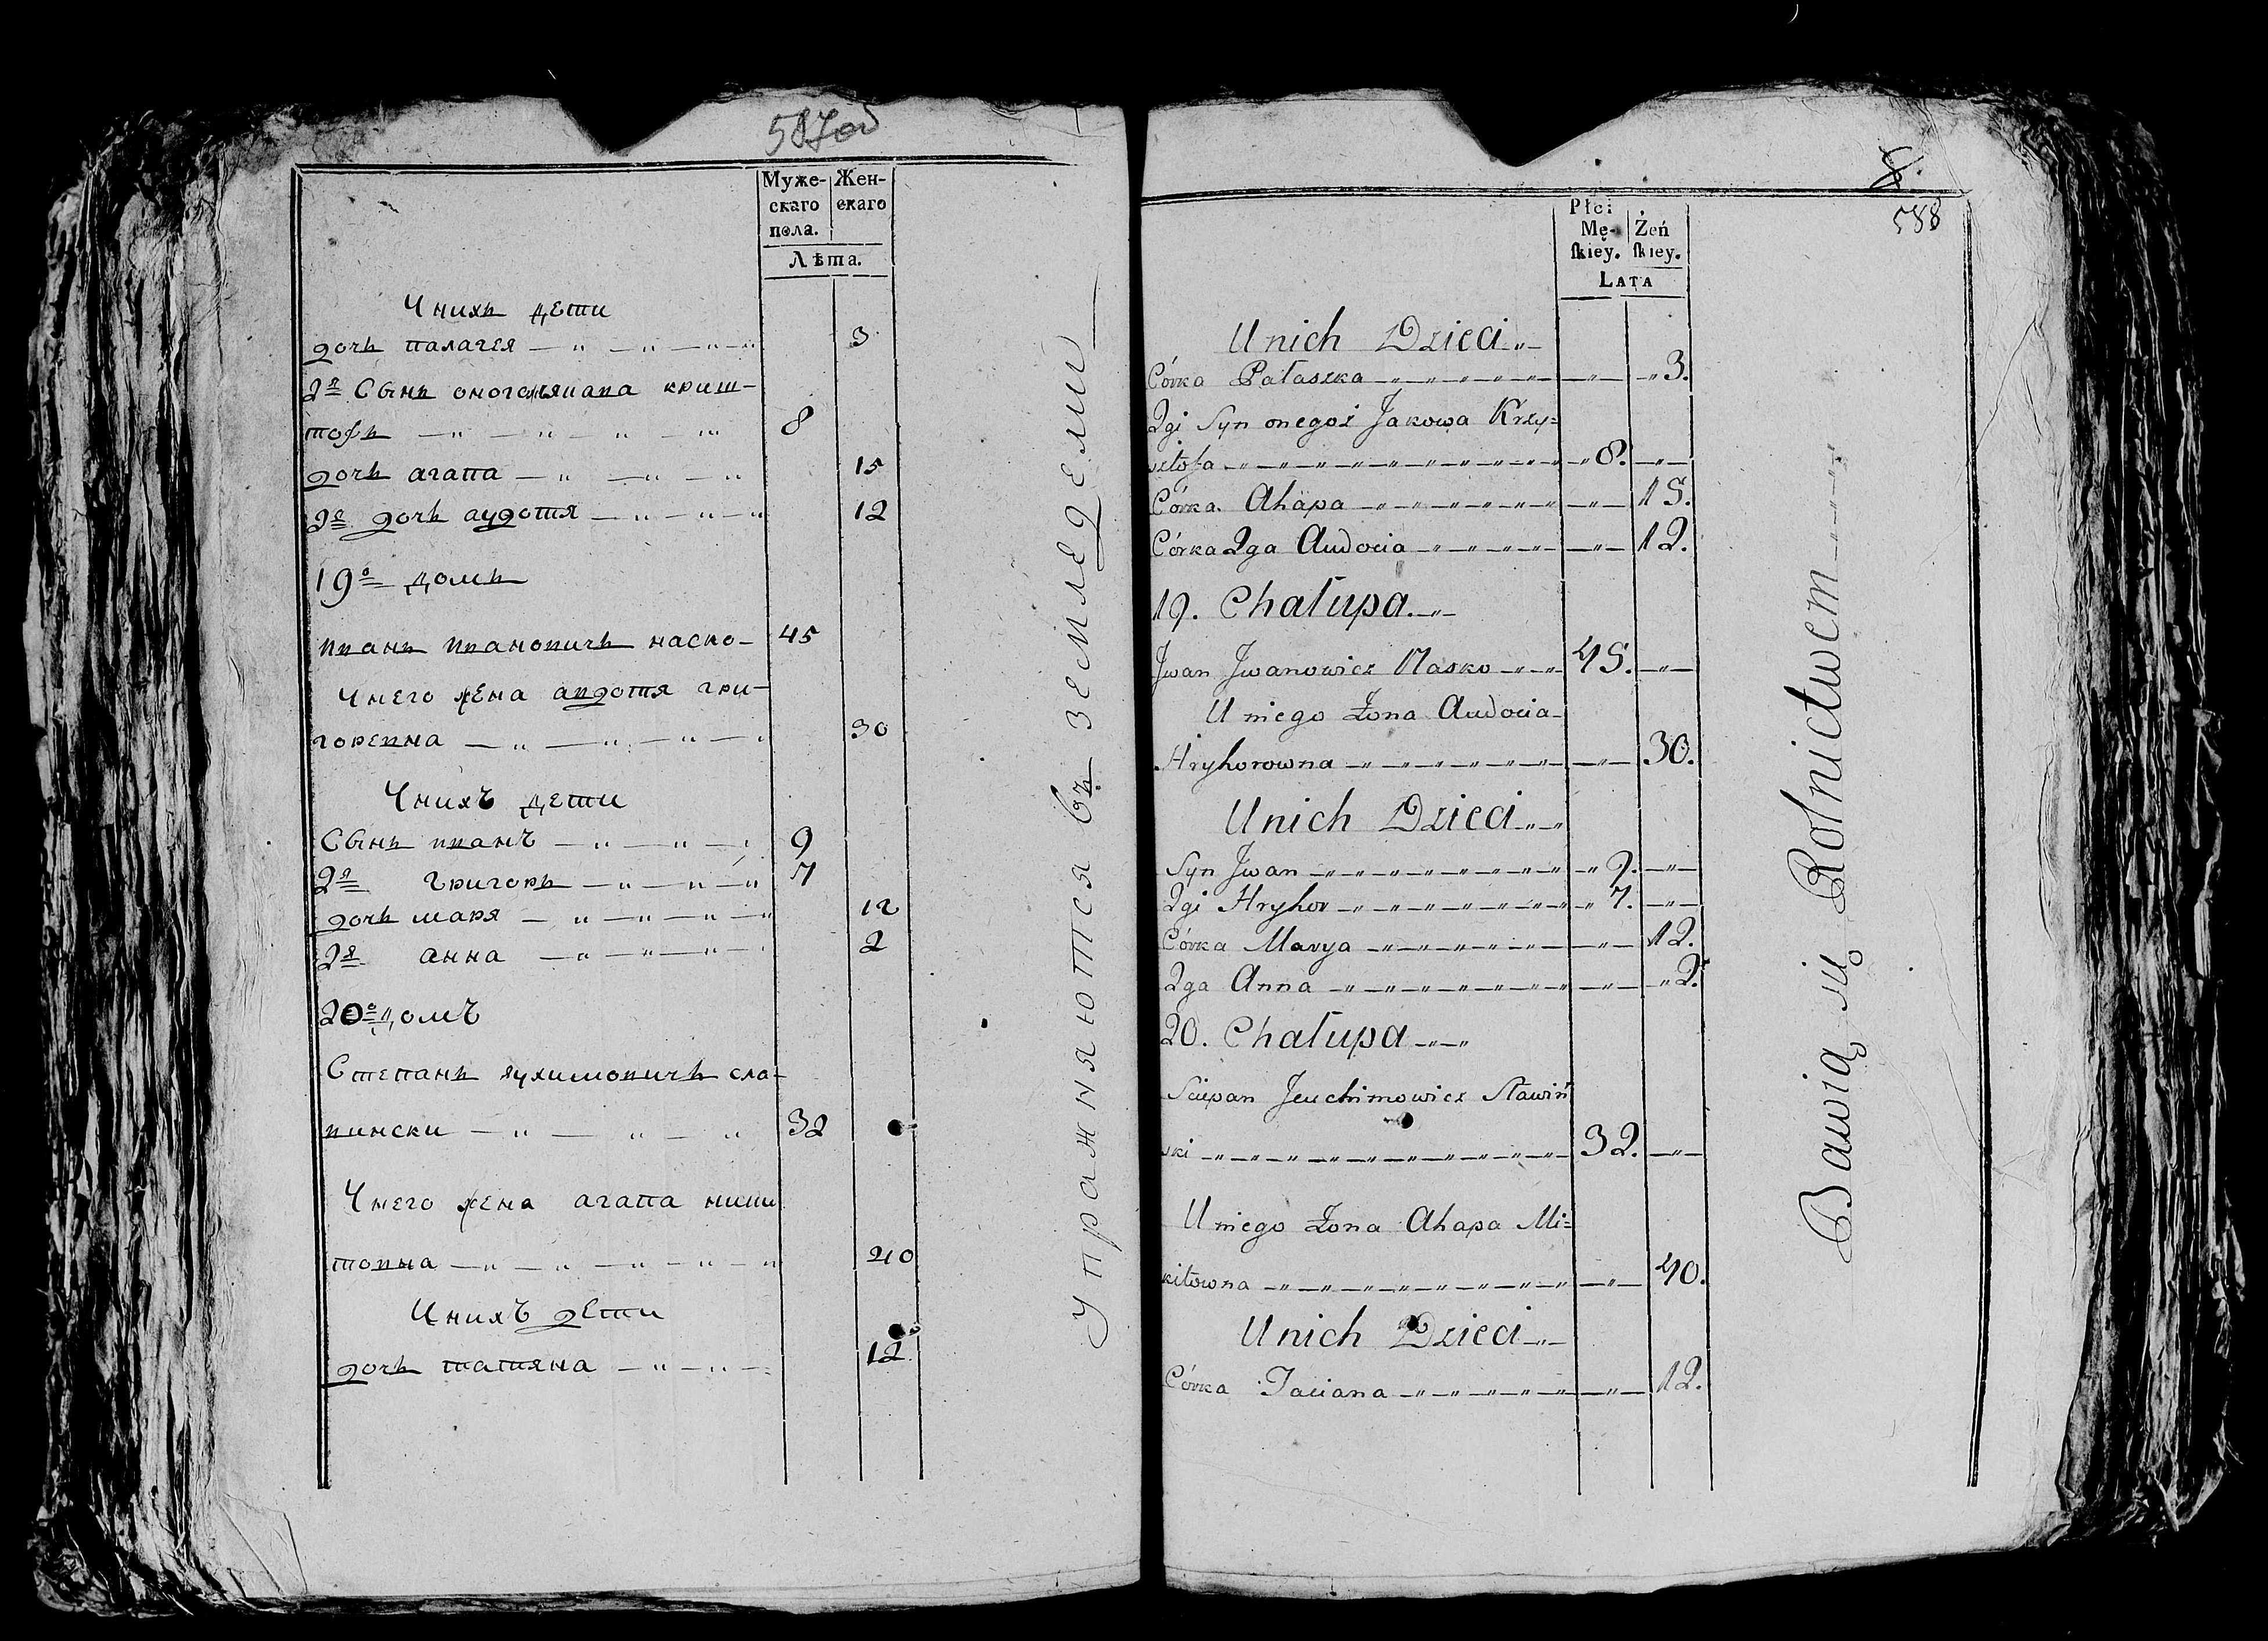 587 об
Муже-
скаго
пола.
Жен-
скаго
Лѣта.
У нихъ дети
дочь палагея — „ — „ — „ — 3
2я Сынъ оногоякова криш-
тофъ — „ — „ — „ — „ 8
дочь агапа — „ — „ — „ 15
2я дочь аудотя — „ — „ — „ 12
19о домъ
иванъ ивановичъ наско- 45
У него жена авдотя гри-
горевна — „ — „ — „ — „ 30
У нихъ дети
Сынъ иванъ — „ — „ — „ 9
2я григоръ — „ — „ — „ 7
дочь маря — „ — „ — „ — „ 12
2я анна — „ — „ — „ — „ 2
20о домъ
Степанъ яухимовичъ сла-
вински — „ — „ — „ 32
У него жена агапа мики
товна — „ — „ — „ — „ — „ 40
У нихъ дети
дочь татяна — „ — „ — 12.
Упражняются въ земледели
8.
588
Płci
Mę-
skiey.
Żeń
skiey.
LATA
U nich Dzieci „—
Córka Pałaszka — „ — „ — „ 3.
2gi Syn onegoż Jakowa Krzy=
sztofa — „ — „ — „ — „ 8. — „ —
Córka Ahapa — „ — „ — „ — 15.
Córka 2ga Audocia — „ — „ — „ — 12.
19. Chałupa. „—
Jwan Jwanowicz Nasko — „ — „ 45. — „ —
U niego Żona Audocia —
Hryhorowna — „ — „ — „ — 30.
U nich Dzieci „ — „
Syn Jwan — „ — „ — „ — „ 9. — „ —
2gi Hryhor — „ — „ — „ — „ 7. — „ —
Córka Marya — „ — „ — „ — 12.
2ga Anna — „ — „ — „ — „ 2.
20. Chałupa — „ — „
Sciepan Jeuchimowicz Sławiń
ski — „ — „ — „ — „ — 32. — „ —
U niego Żona Ahapa Mi=
kitowna — „ — „ — „ — „ — 40.
U nich Dzieci „—
Córka Taciana — „ — „ — „ — 12.
Bawią się Rolnictwem — „ — „ —